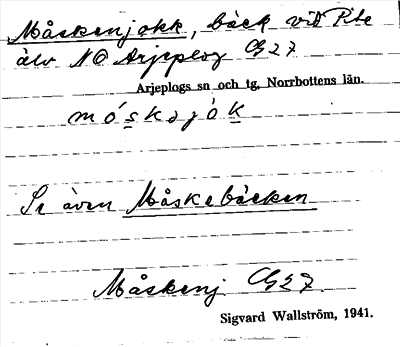 Måskenjokk, bäck vid Pite
älv NO Arjeplog G27
Arjeplogs sn och tg, Norrbottens län.
mó̀skəjòk
Se även Måskebäcken
Måskenj G27
Sigvard Wallström, 1941.